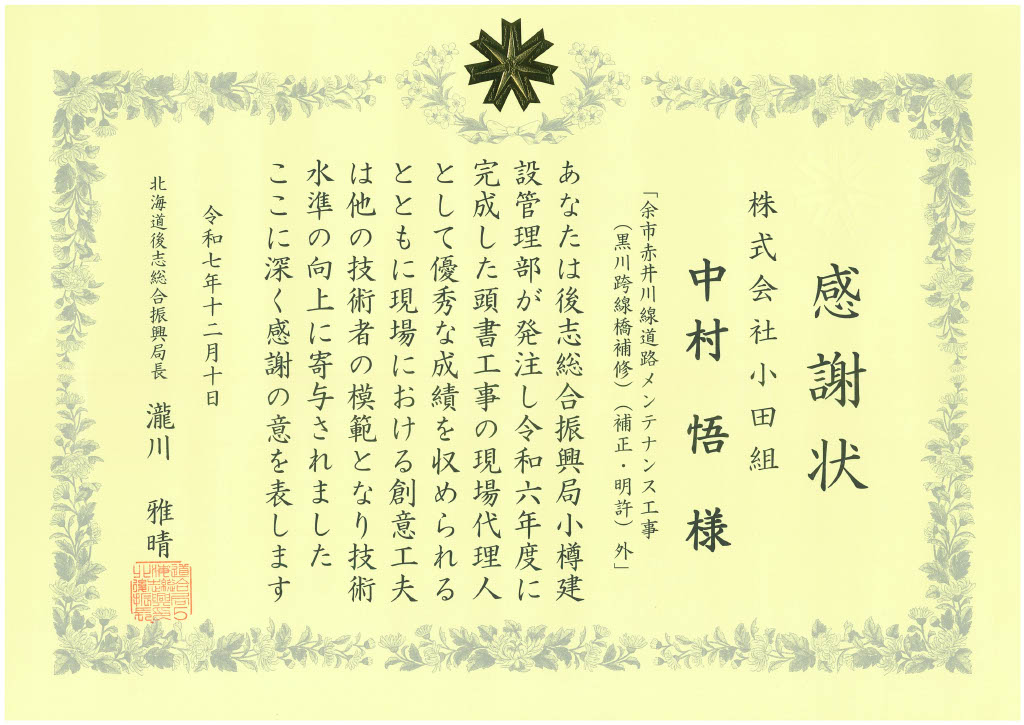 感謝状
株式会社小田組
中村 悟 様
「余市赤井川線道路メンテナンス工事
（黒川跨線橋補修）（補正・明許）外」
あなたは後志総合振興局小樽建
設管理部が発注し令和六年度に
完成した頭書工事の現場代理人
として優秀な成績を収められる
とともに現場における創意工夫
は他の技術者の模範となり技術
水準の向上に寄与されました
ここに深く感謝の意を表します
令和七年十二月十日
北海道後志総合振興局長 瀧川 雅晴